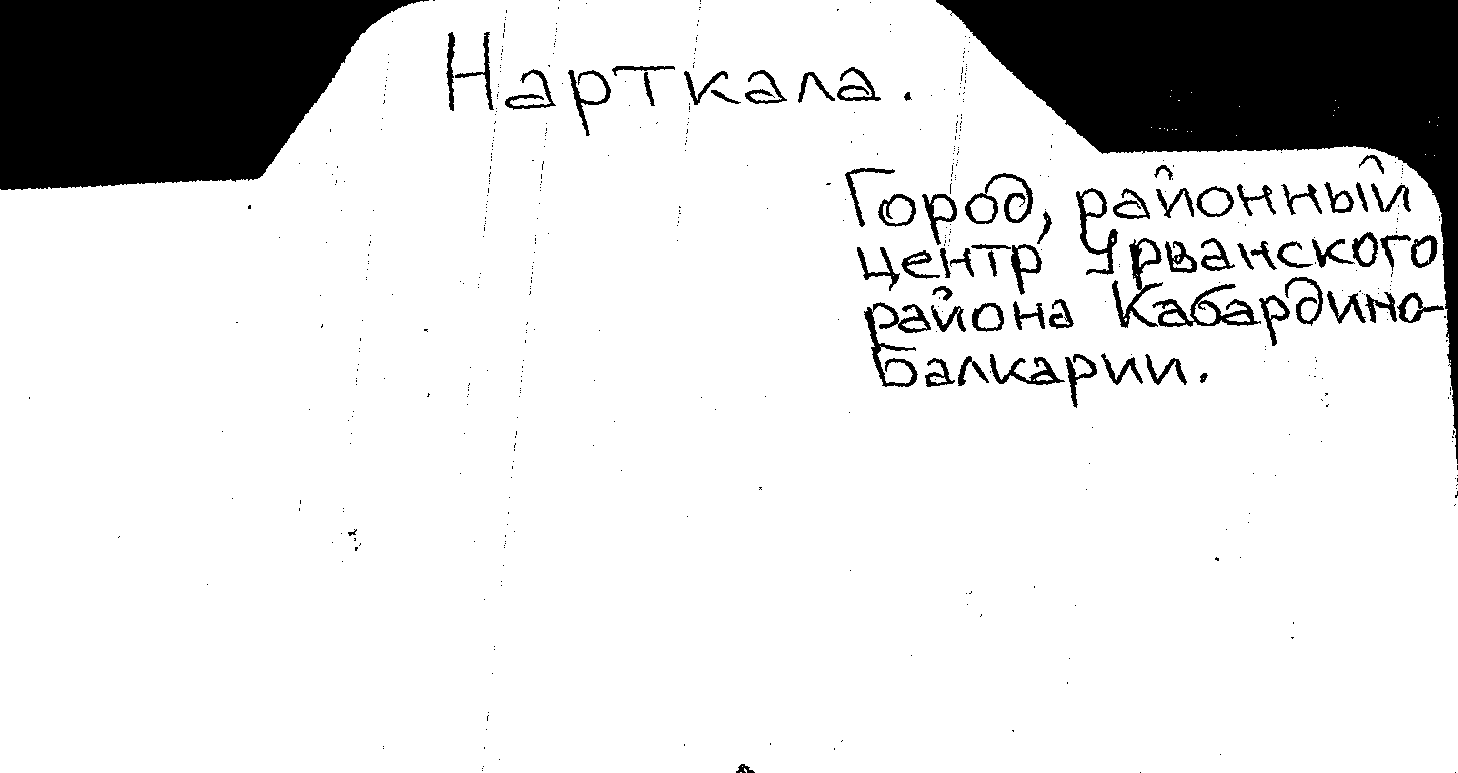 Нарткала.
Город, районный
центр Урванского
района Кабардино-
Балкарии.